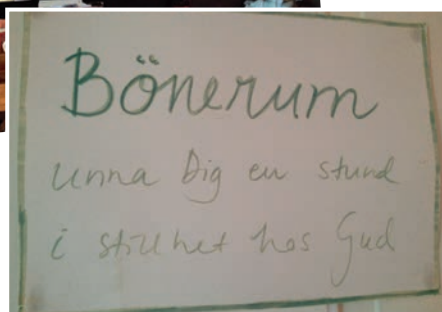 Bönerum
unna Dig en stund
i stillhet hos Gud